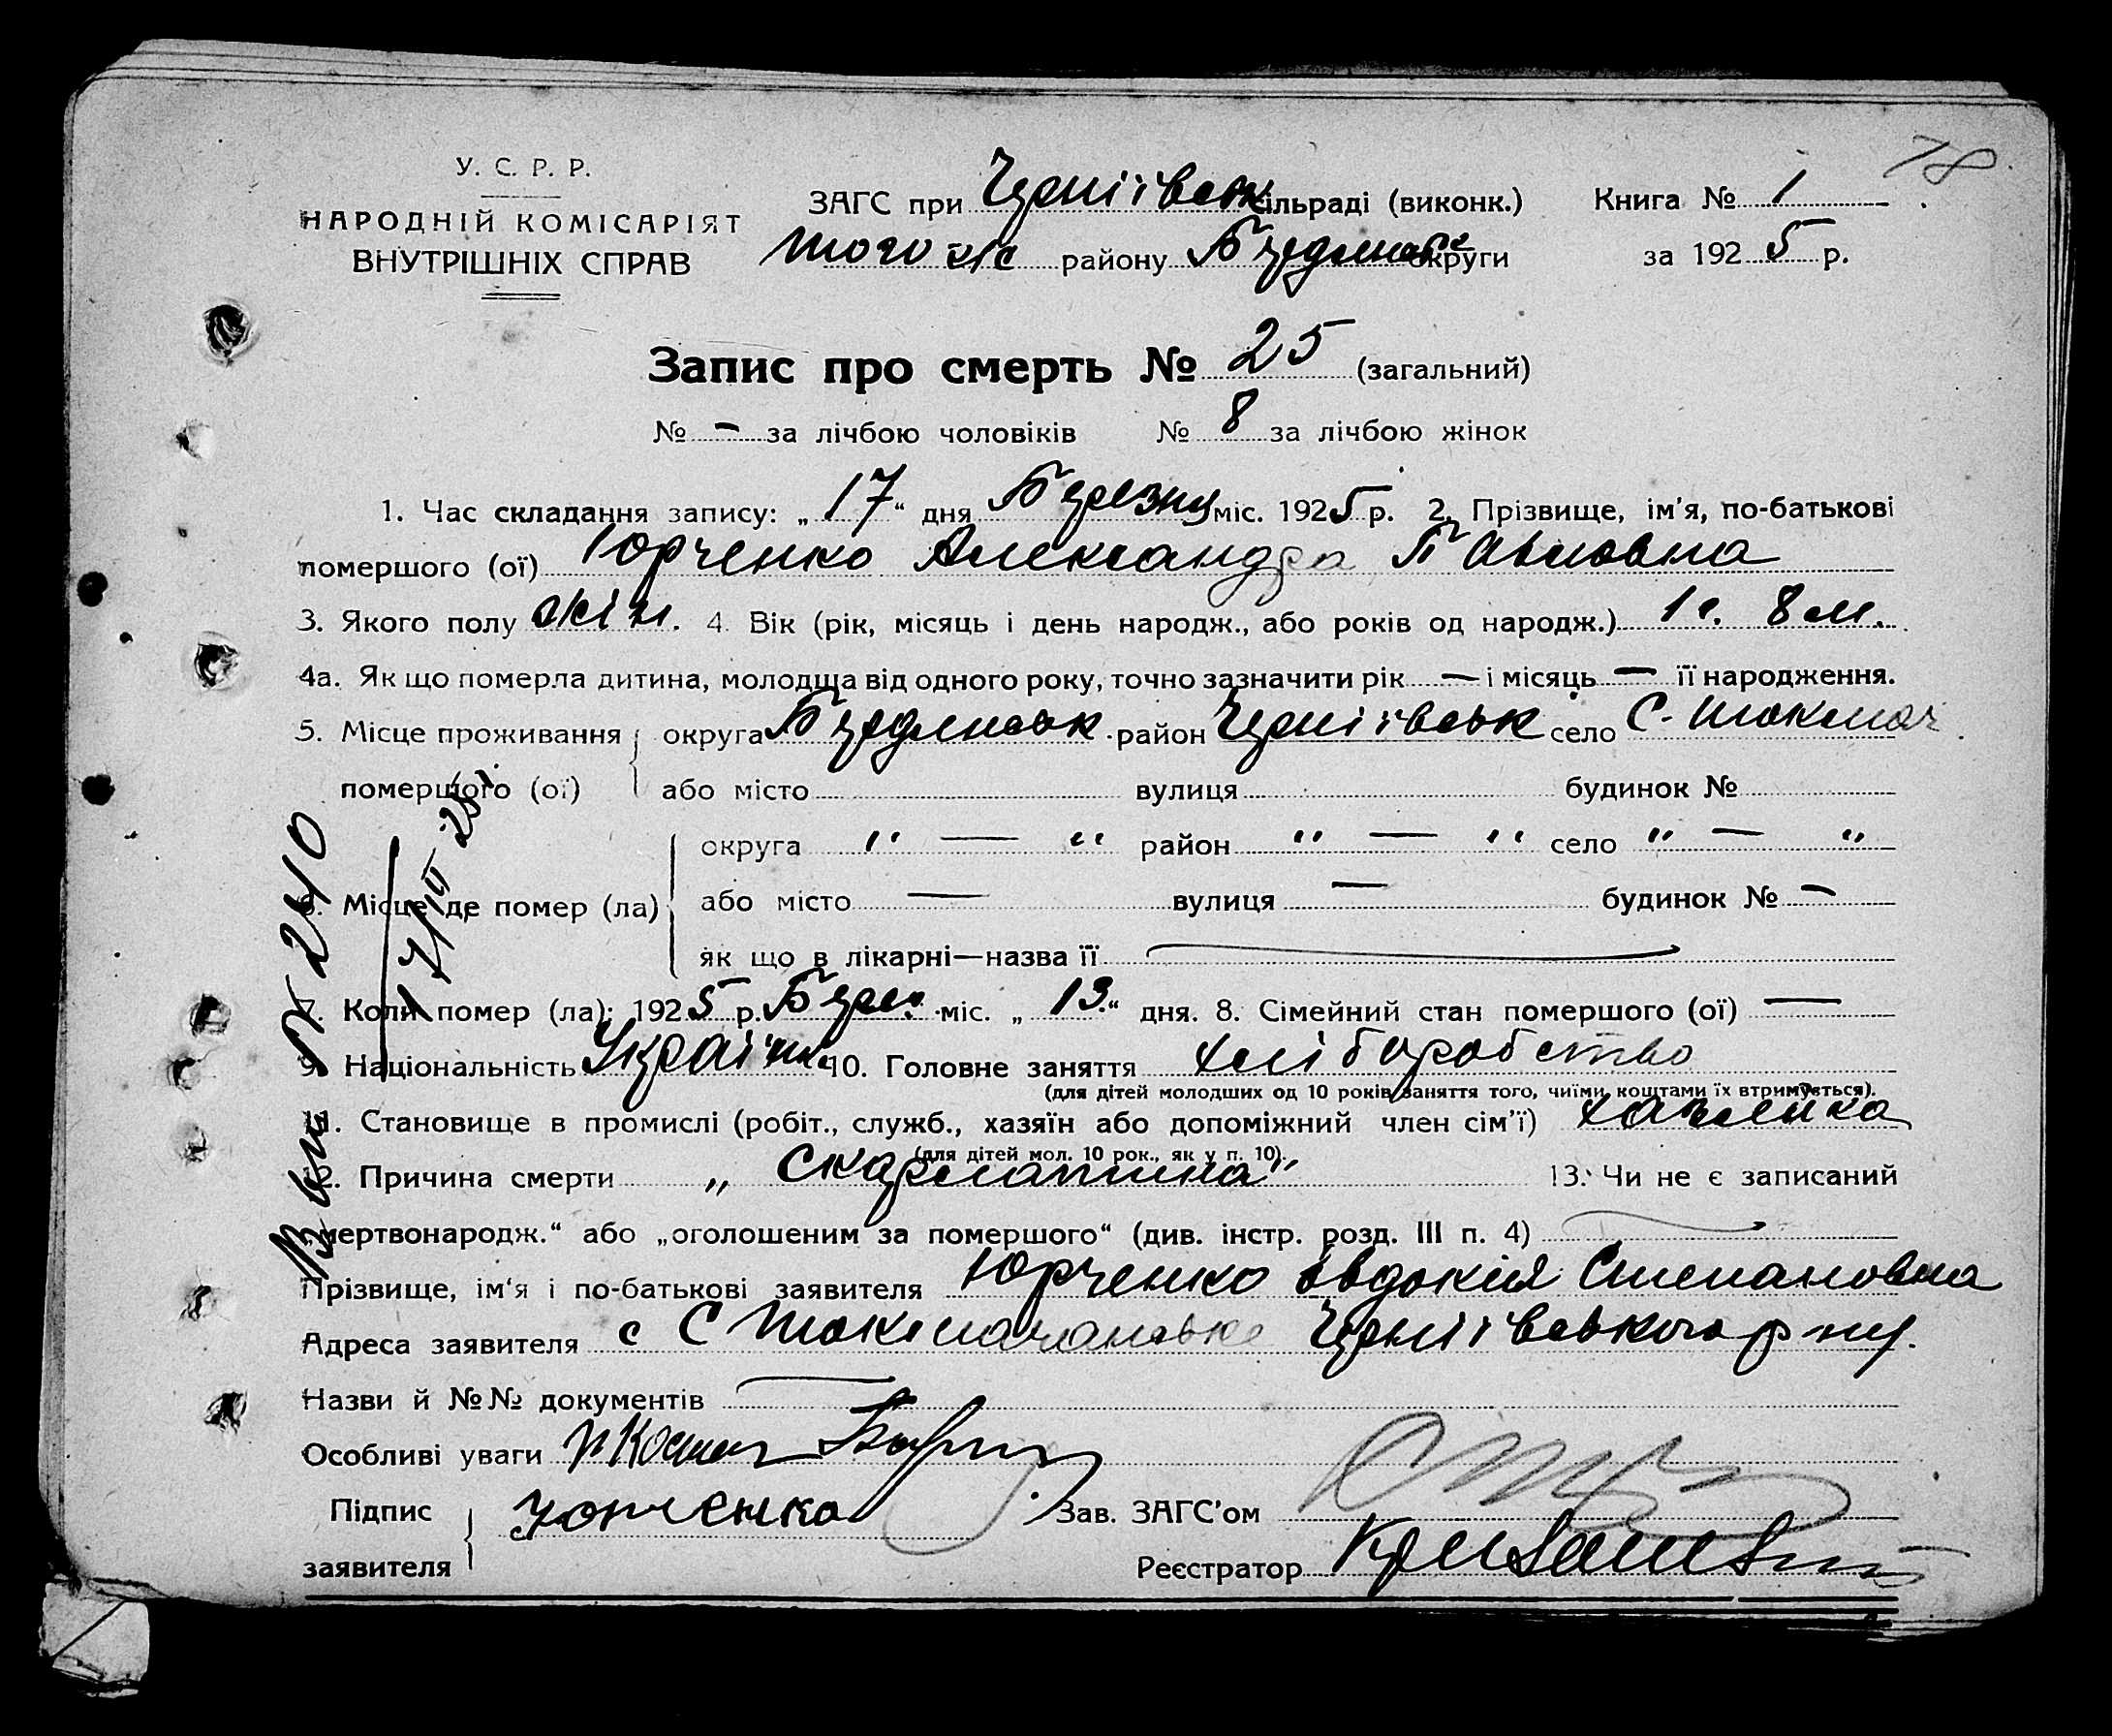 78
У. С. Р. Р.
НАРОДНІЙ КОМІСАРІЯТ
ВНУТРІШНІХ СПРАВ
ЗАГС при Черніівськ сільраді (виконк.) Книга № 1
того же району округи за 1925 р.
Запис про смерть № 25 (загальний)
№ - за лічбою чоловіків № 8 за лічбою жінок
1. Час складання запису: „17“ дня Березня міс. 1925 р. 2. Прізвище, ім'я, по-батькові
помершого (ої) Юрченко Александра Павловна
3. Якого полу жін. 4. Вік (рік, місяць і день народж., або років од народж.) 1 г. 8 м.
4а. Як що померла дитина, молодща від одного року, точно зазначити рік — і місяць — її народження.
5. Місце проживання округа Бердянськ район Черніівськ село С. Токмач
помершого (ої) або місто вулиця будинок №
округа " — " район " — " село " — "
6. Місце де помер (ла) або місто — вулиця — будинок № —
як що в лікарні—назва її
7. Коли помер (ла): 1925 р. Берез. міс. „13.“ дня. 8. Сімейний стан помершого (ої) —
9. Національність 10. Головне заняття хліборобство
(для дітей молодших од 10 років заняття того, чиїми коштами їх втримується).
11. Становище в промислі (робіт., служб., хазяїн або допоміжний член сім'ї)
(для дітей мол. 10 рок., як у п. 10).
12. Причина смерти „Скарлатина" 13. Чи не є записаний
„мертвонародж.“ або „оголошеним за помершого“ (див. інстр. розд. III п. 4)
Прізвище, ім'я і по-батькові заявителя Юрченко Евдокія Степановна
Адреса заявителя с С Токмачанське Черніівського р ну.
Назви й №№ документів
Особливі уваги
Підпис заявителя Юрченко Зав. ЗАГС'ом
Реєстратор
240
17/III 25